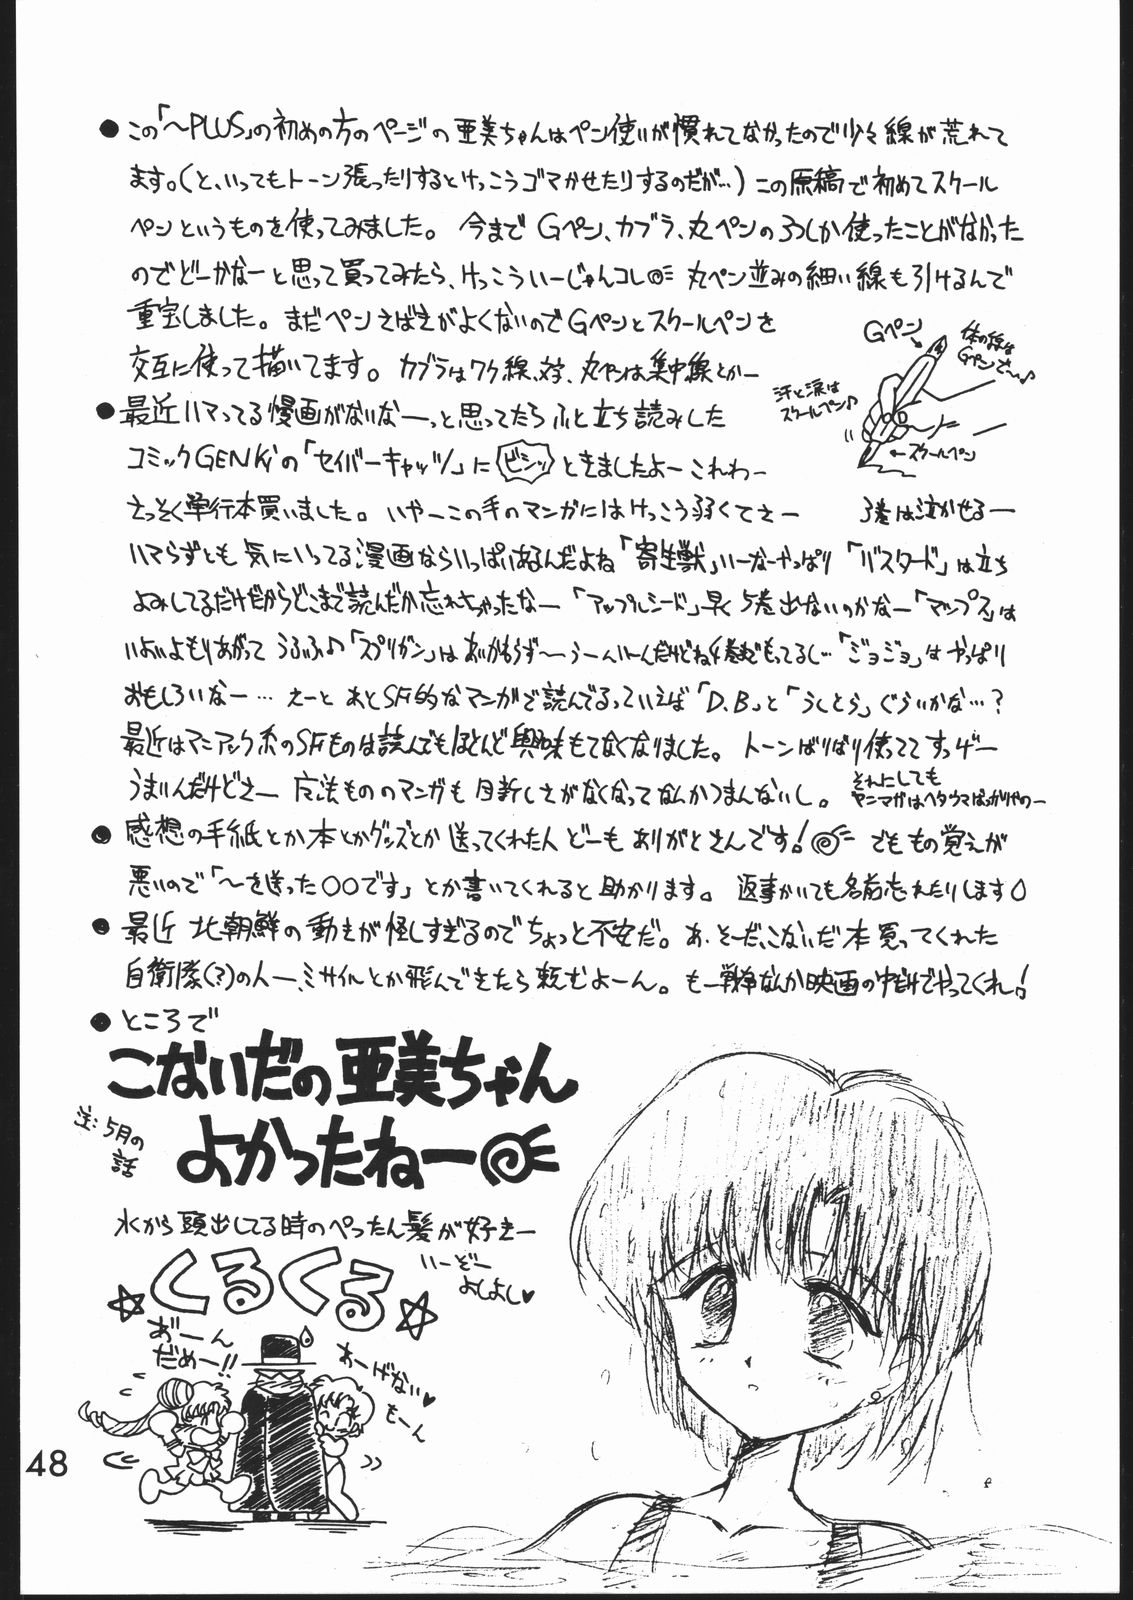 ●この「～PLUS」の初めの方のページの亜美ちゃんはペン使いが慣れてなかったので少々線が荒れて
ます。(と、いってもトーン張ったりするとけっこうゴマかせたりするのだが…)この原稿で初めてスクール
ペンというものを使ってみました。今までGペン、カブラ、丸ペンの3つしか使ったことがなかった
のでどーかなーと思って買ってみたら、けっこういーじゃんコレ 丸ペン並みの細い線も引けるんで
重宝しました。まだペンさばきがよくないのでGペンとスクールペンを
交互に使って描いてます。カブラはワク線、文字、丸ペンは集中線とかー
Gペン
体の線は
Gペンでっ♪
汗と涙は
スクールペン♪
←スクールペン
●最近ハマってる漫画がないなーっと思ってたらふと立ち読みした
コミックGENKiの「セイバーキャッツ」にビシッときましたよーこれわー
さっそく単行本買いました。いやーこの手のマンガにはけっこう弱くてさー 3巻は泣かせるー
ハマらずとも気にいってる漫画ならいっぱいあるんだよね「寄生獣」いーなーやっぱり「バスタード」は立ち
よみしてるだけだからどこまで読んだか忘れちゃったなー「アップルシード」早く5巻出ないのかなー「マップス」は
いよいよもりあがってうふふ♪「スプリガン」はあいかわらず～うーんいーんだけどね 「ジョジョ」はやっぱり
おもしろいなー…えーとあとSF的なマンガで読んでるっていえば「D.B」と「うしとら」ぐらいかな…?
最近はマニアック系のSFものは読んでもほとんど興味もてなくなりました。トーンばりばり使っててすっげー
うまいんだけどさー魔法もののマンガも目新しさがなくなってなんかつまんないし。
それにしても
ヤンマガはヘタウマばっかりやのー
●感想の手紙とか本とかグッズとか送ってくれた人どーもありがとさんです! でももの覚えが
悪いので「～を送った○○です」とか書いてくれると助かります。返事かいても名前忘れたりします
●最近北朝鮮の動きが怪しすぎるのでちょっと不安だ。あ、そーだ、こないだ本買ってくれた
自衛隊(?)の人ー、ミサイルとか飛んできたら頼むよーん。もー戦争なんか映画の中だけでやってくれ!
●ところで
こないだの亜美ちゃん
よかったねー
注:5月の
話
水から頭出してる時のぺったん髪が好きー
くるくる
いーどー
よしよし♥
あ゛ーん
だめー!!
あーげない♥
もーん
48